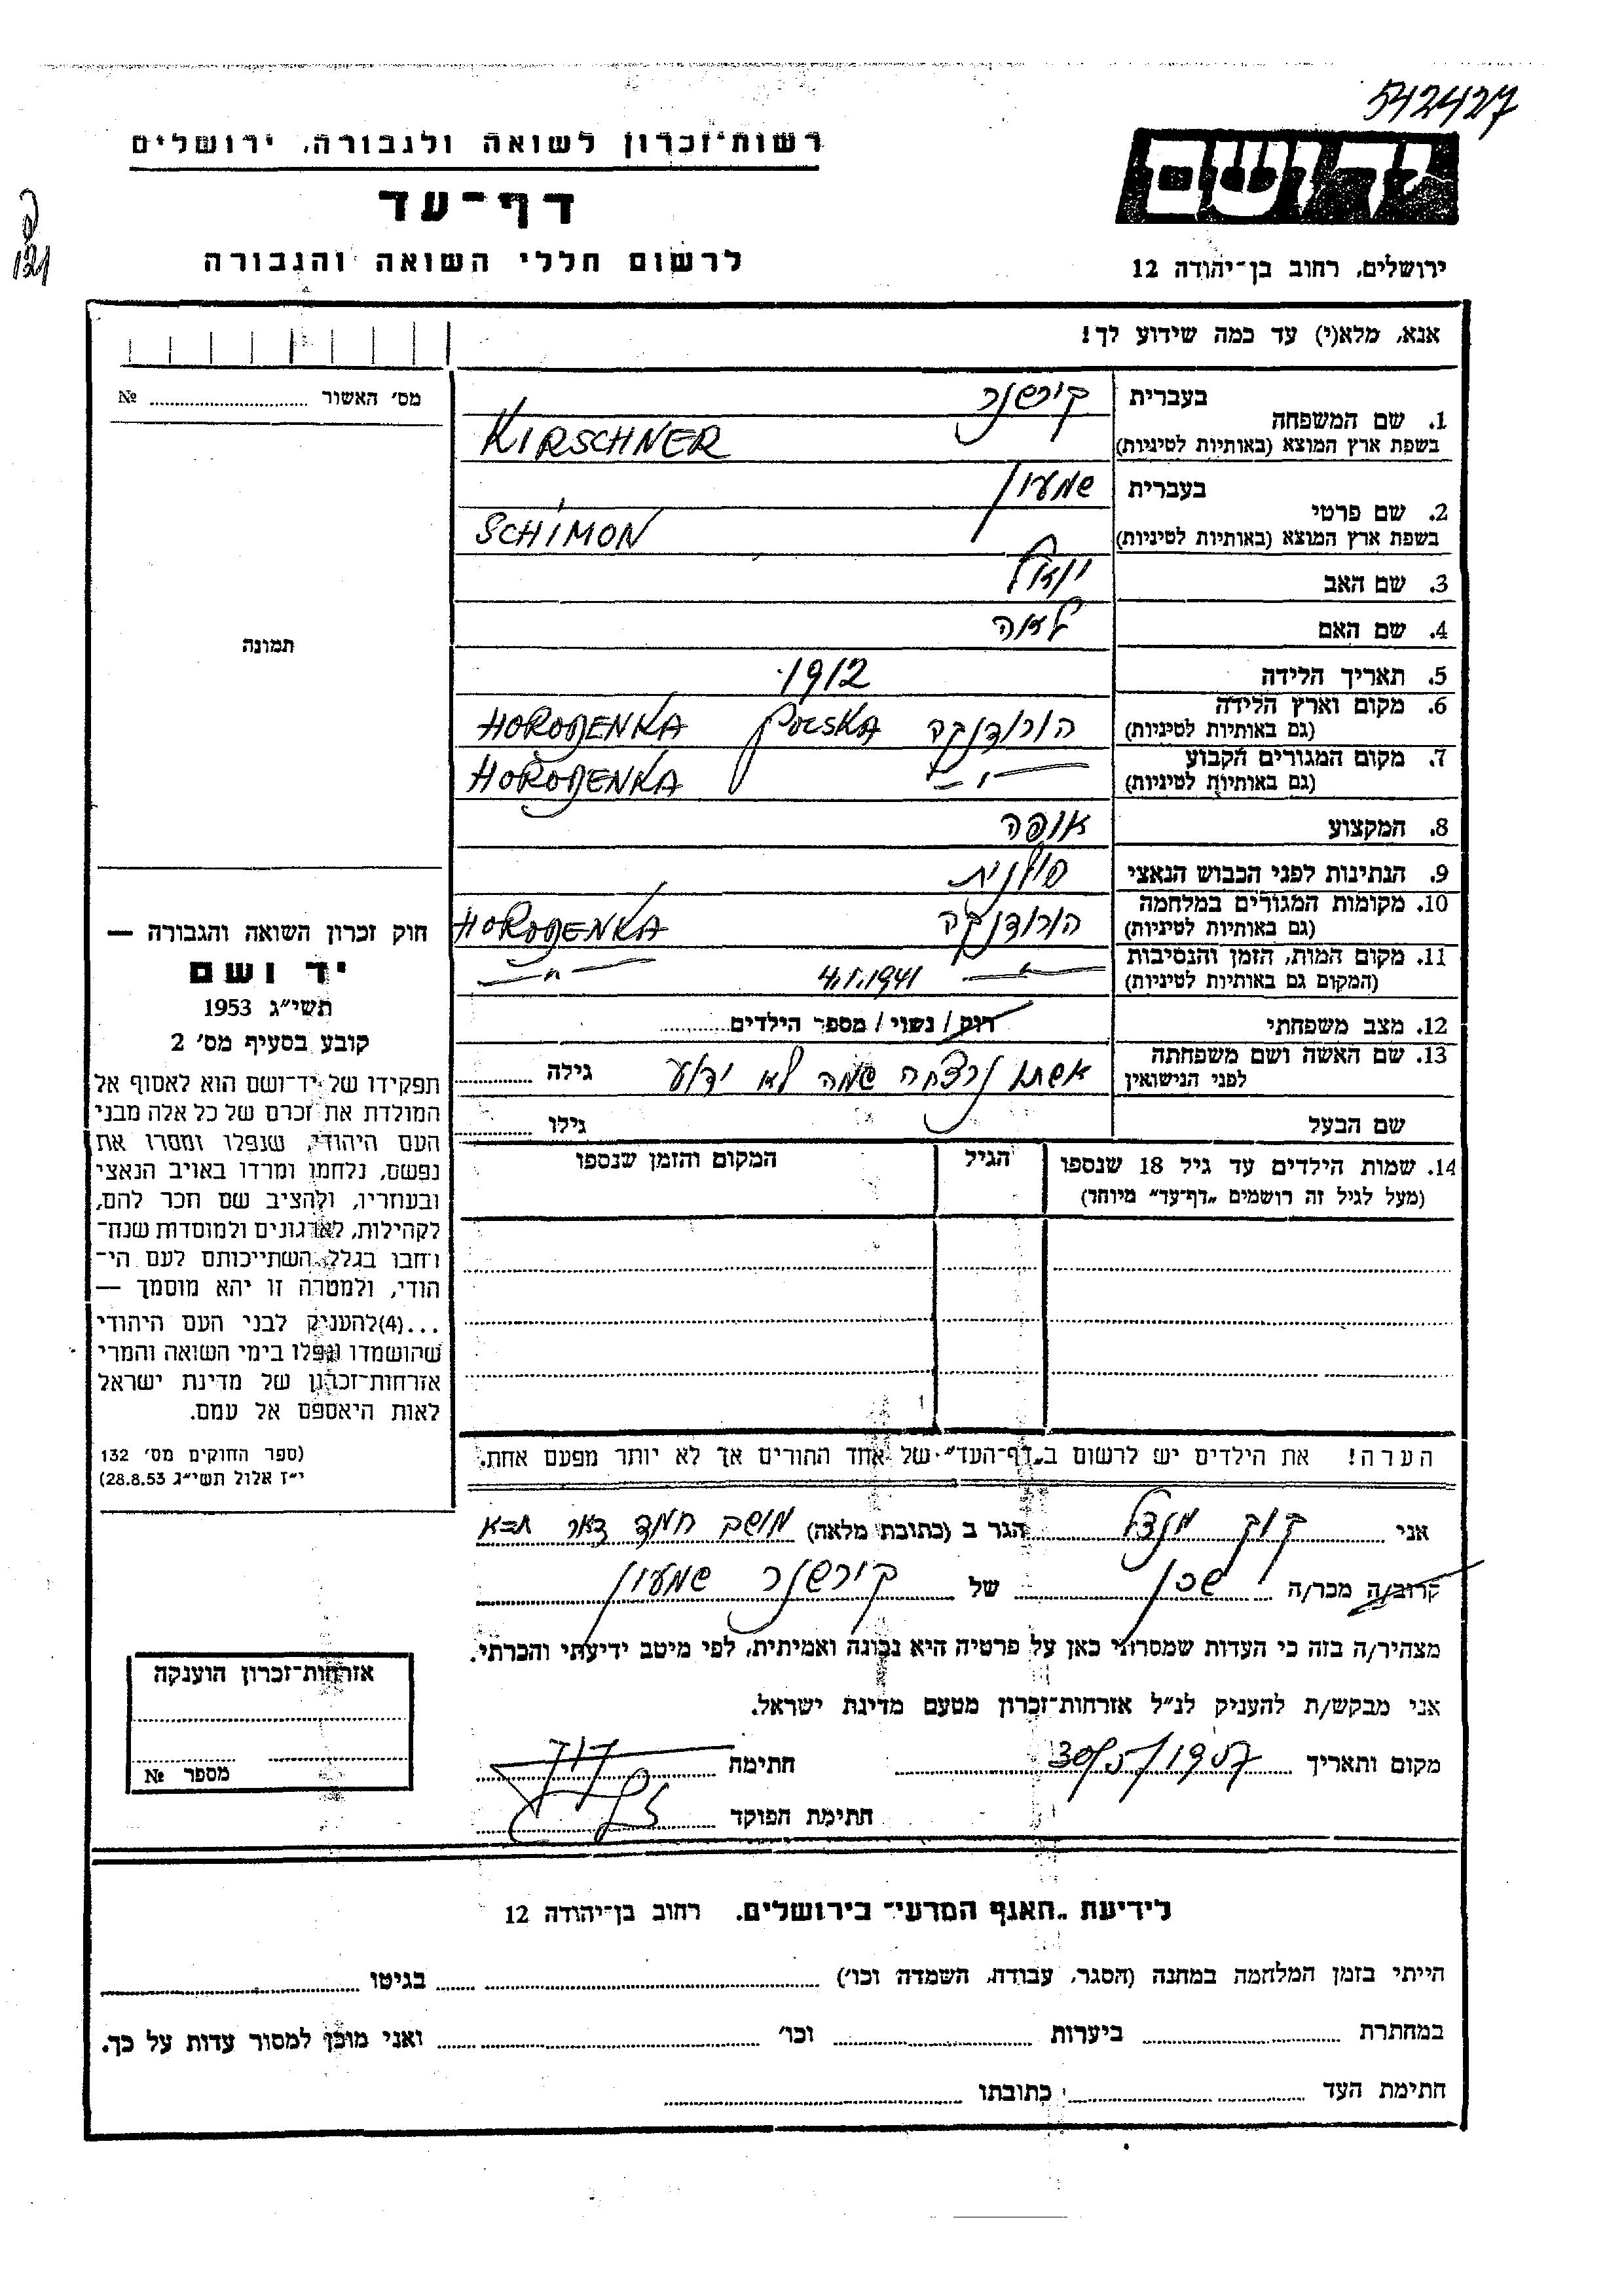 542427
רשות־זכרון לשואה ולגבורה, ירושלים
יד ושם
דף־עד
לרשום חללי השואה והגבורה
ירושלים, רחוב בן־יהודה 12
אנא, מלא(י) עד כמה שידוע לך!
מס׳ האשור № 
1. שם המשפחה בעברית קירשנר
בשפת ארץ המוצא (באותיות לטיניות) KIRSCHNER
2. שם פרטי בעברית שמעון
בשפת ארץ המוצא (באותיות לטיניות) SCHIMON
3. שם האב יואל
4. שם האם לאה
תמונה
5. תאריך הלידה 1912
6. מקום וארץ הלידה (גם באותיות לטיניות) הורודנקה POLSKA HORODENKA
7. מקום המגורים הקבוע (גם באותיות לטיניות) — " — HORODENKA
8. המקצוע אופה
9. הנתינות לפני הכבוש הנאצי פולנית
10. מקומות המגורים במלחמה (גם באותיות לטיניות) הורודנקה HORODENKA
11. מקום המות, הזמן והנסיבות (המקום גם באותיות לטיניות) — " — 4.1.1941 — " —
12. מצב משפחתי רוק / נשוי / מספר הילדים
13. שם האשה ושם משפחתה לפני הנישואין אשתו נרצחה שמה לא ידוע גילה
שם הבעל גילו
14. שמות הילדים עד גיל 18 שנספו (מעל לגיל זה רושמים „דף־עד״ מיוחד) הגיל המקום והזמן שנספו
חוק זכרון השואה והגבורה —
יד ושם
תשי״ג 1953
קובע בסעיף מס׳ 2
תפקידו של יד־ושם הוא לאסוף אל
המולדת את זכרם של כל אלה מבני
העם היהודי, שנפלו ומסרו את
נפשם, נלחמו ומרדו באויב הנאצי
ובעוזריו, ולהציב שם וזכר להם,
לקהילות, לארגונים ולמוסדות שנח־
רחבו בגלל השתייכותם לעם הי־
הודי, ולמטרה זו יהא מוסמך —
...(4)להעניק לבני העם היהודי
שהושמדו ונפלו בימי השואה והמרי
אזרחות־זכרון של מדינת ישראל
לאות היאספם אל עמם.
(ספר החוקים מס׳ 132
י״ז אלול תשי״ג 28.8.53)
הערה! את הילדים יש לרשום ב„דף־העד״ של אחד ההורים אך לא יותר מפעם אחת.
אני קוק מנדל הגר ב (כתובת מלאה) מושב חמד דאר
קרוב/ה מכר/ה שכן של קירשנר שמעון
מצהיר/ה בזה כי העדות שמסרתי כאן על פרטיה היא נכונה ואמיתית, לפי מיטב ידיעתי והכרתי.
אני מבקש/ת להעניק לנ״ל אזרחות־זכרון מטעם מדינת ישראל.
מקום ותאריך 30/5/1957 חתימה קוק
חתימת הפוקד
אזרחות־זכרון הוענקה
מספר №
לידיעת „האגף המדעי״ בירושלים. רחוב בן־יהודה 12
הייתי בזמן המלחמה במחנה (הסגר, עבודה, השמדה וכו׳) בגיטו
במחתרת ביערות וכו׳ ואני מוכן למסור עדות על כך.
חתימת העד כתובתו